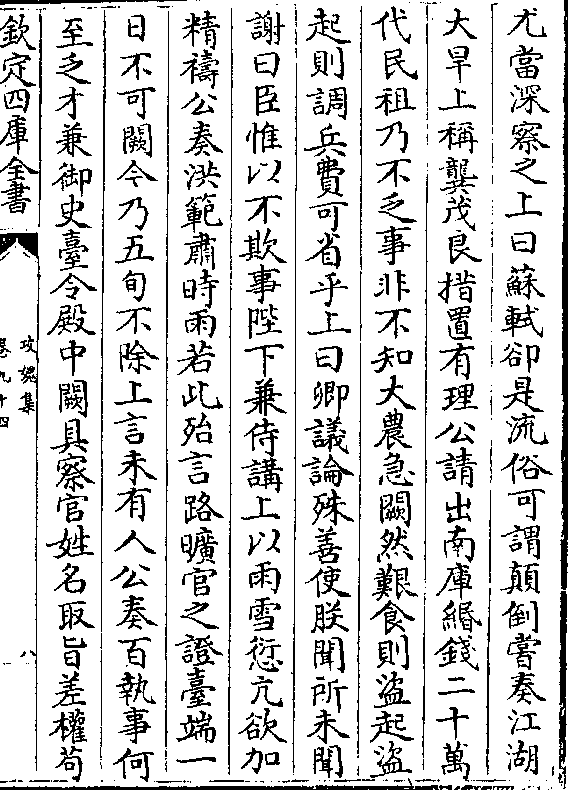 尤當深察之上曰蘇軾卻是流俗可謂顛倒嘗奏江湖
大旱上稱龔茂良措置有理公請出南庫緡錢二十萬
代民租乃不乏事非不知大農急闕然艱食則盜起盜
起則調兵費可省乎上曰卿議論殊善使朕聞所未聞
謝曰臣惟以不欺事陛下兼侍講上以雨雪愆亢欲加
精禱公奏洪範肅時雨若此殆言路曠官之證臺端一
日不可闕今乃五旬不除上言未有人公奏百執事何
至乏才兼御史臺令殿中闕具察官姓名取旨差權苟
欽定四庫全書
攻媿集
卷九十四
八